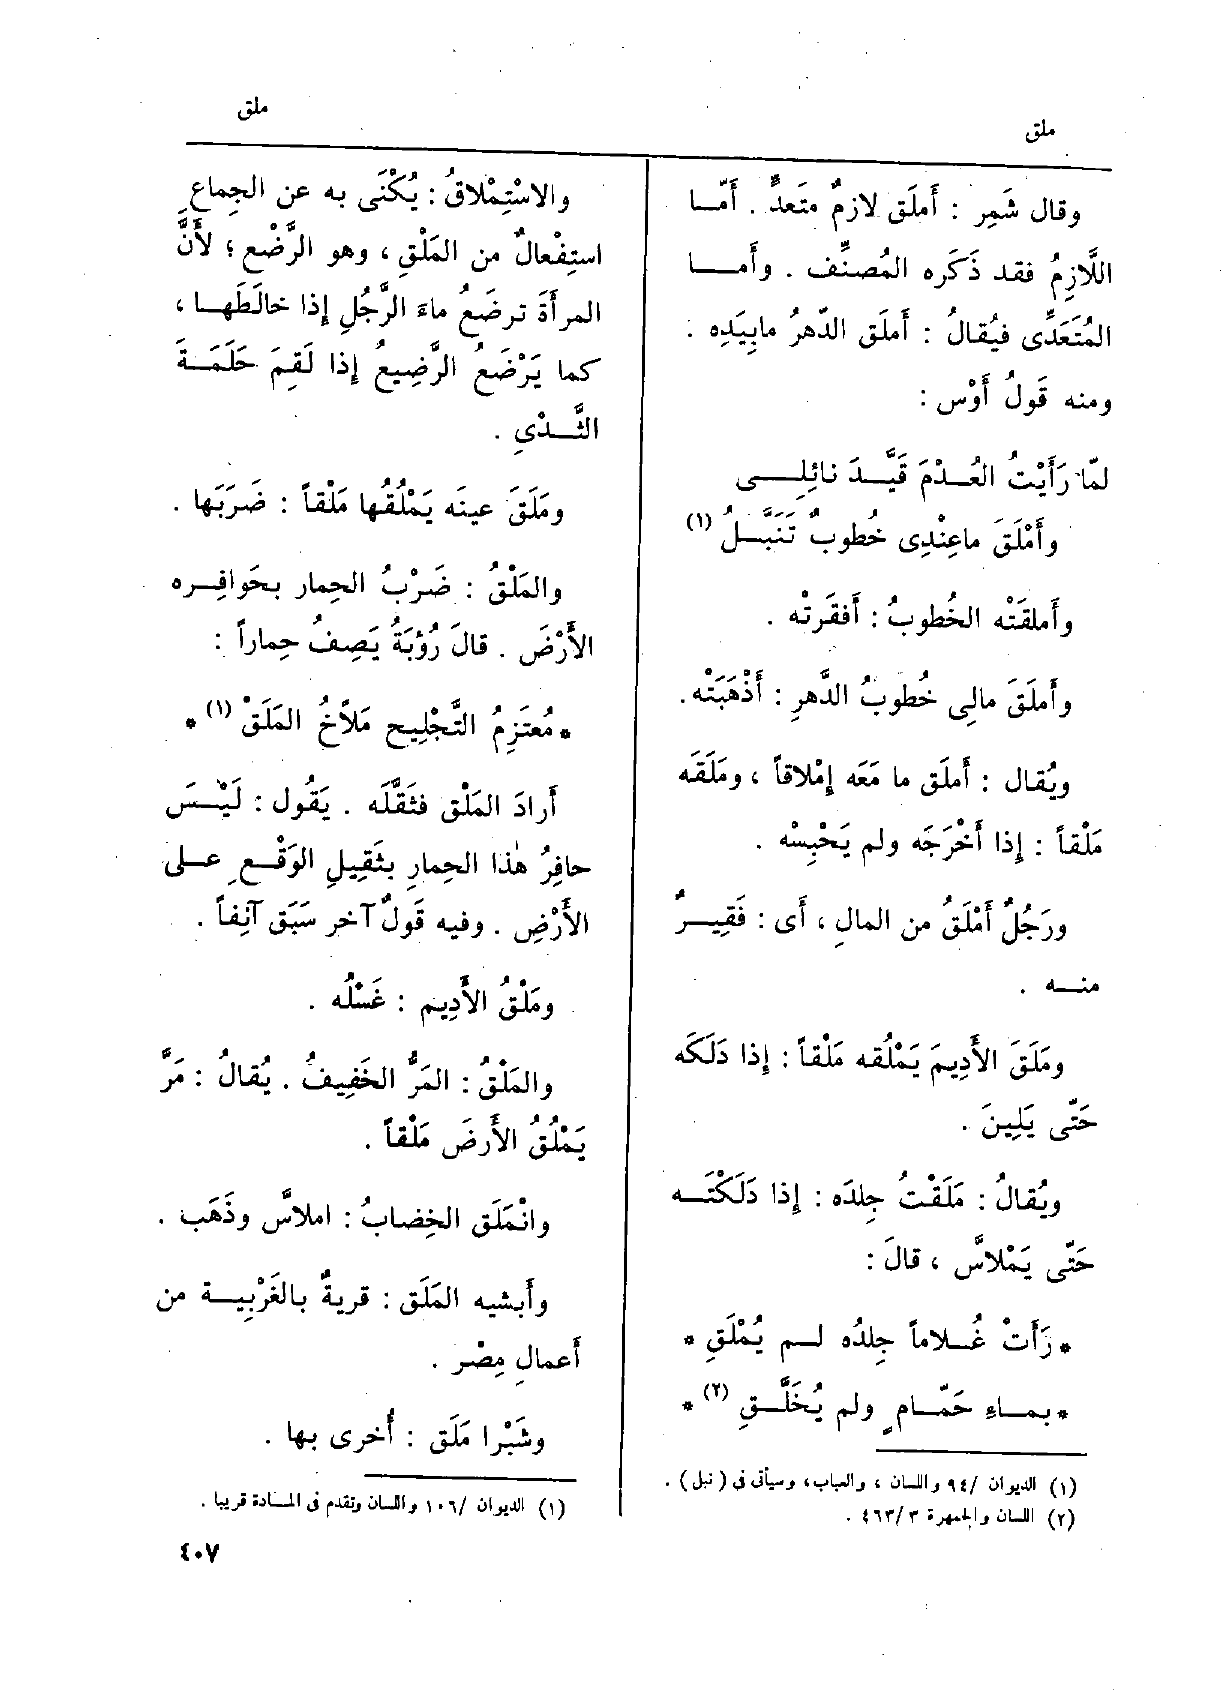 ملق
وقال شَمِر : أَملَق لازمٌ متَعدٍّ . أَمّا
اللَّازِمُ فقد ذَكَره المُصنِّف . وأَمــا
المُتَعَدِّى فيُقالُ : أَملَق الدّهرُ مابِيَدِه .
ومنه قَولُ أَوْس :
لمّا رَأَيْتُ العُــدْمَ قَيَّــدَ نائِلِــى
وأَمْلَقَ ماعِنْدِى خُطوبٌ تَنَبَّــلُ (١)
وأَملقَتْه الخُطوبُ : أَفقَرتْه .
وأَملَقَ مالِى خُطوبُ الدَّهرِ : أَذْهَبَتْه .
ويُقال : أَملَق ما مَعَه إِمْلاقاً ، ومَلَقَه
مَلْقاً : إِذا أَخْرَجَه ولم يَحْبِسْه .
ورَجُلٌ أَمْلَقُ من المالِ ، أَى : فَقِيــرٌ
منــه .
ومَلَقَ الأَدِيمَ يَمْلُقه مَلْقاً : إِذا دَلَكَه
حَتّى يَلِينَ .
ويُقالُ : مَلَقْتُ جِلدَه : إِذا دَلَكْتَــه
حَتّى يَمْلاسَّ ، قالَ :
* رَأَتْ غُــلاماً جِلدُه لــم يُمْلَقِ *
* بمــاءِ حَمّــامٍ ولم يُخَلَّــقِ (٢) *
(١) الديوان /٩٤ واللسان ، والعباب، وسيأتى فى ( نبل ) .
(٢) اللسان والجمهرة ٤٦٣/٣ .
ملق
والاسْتِمْلاقُ : يُكْنَى به عن الجِماعِ
استِفْعالٌ من المَلْقِ ، وهو الرَّضْع ؛ لأَنَّ
المرأَةَ ترضَعُ ماءَ الرَّجُلِ إِذا خالَطَهــا ،
كما يَرْضَعُ الرَّضِيعُ إِذا لَقِمَ حَلَمَــةَ
الثَّــدْىِ .
ومَلَقَ عينَه يَمْلُقُها مَلْقاً : ضَرَبَها .
والمَلْقُ : ضَرْبُ الحِمار بحَوافِــره
الأَرْضَ . قالَ رُؤبَةُ يَصِفُ حِماراً :
* مُعتَزِمُ التَّجْلِيح مَلاّخُ المَلَقْ (١) *
أَرادَ المَلْق فثَقَّلَه . يَقُول : لَيْــسَ
حافِرُ هٰذا الحِمارِ بثَقِيلِ الوَقْــعِ علــى
الأَرْضِ . وفيه قَولٌ آخر سَبَق آنِفاً .
ومَلْقُ الأَدِيم : غَسْلُه .
والمَلْقُ : المَرُّ الخَفِيفُ . يُقالُ : مَرَّ
يَمْلُقُ الأَرضَ مَلْقاً .
وانْمَلَق الخِضابُ : املاسَّ وذَهَب .
وأَبشيه المَلَق : قريةٌ بالغَرْبِيــة من
أَعمالِ مِصْر .
وشَبْرا مَلَق : أُخرى بها .
(١) الديوان /١٠٦ واللسان وتقدم فى المــادة قريبا .
٤٠٧